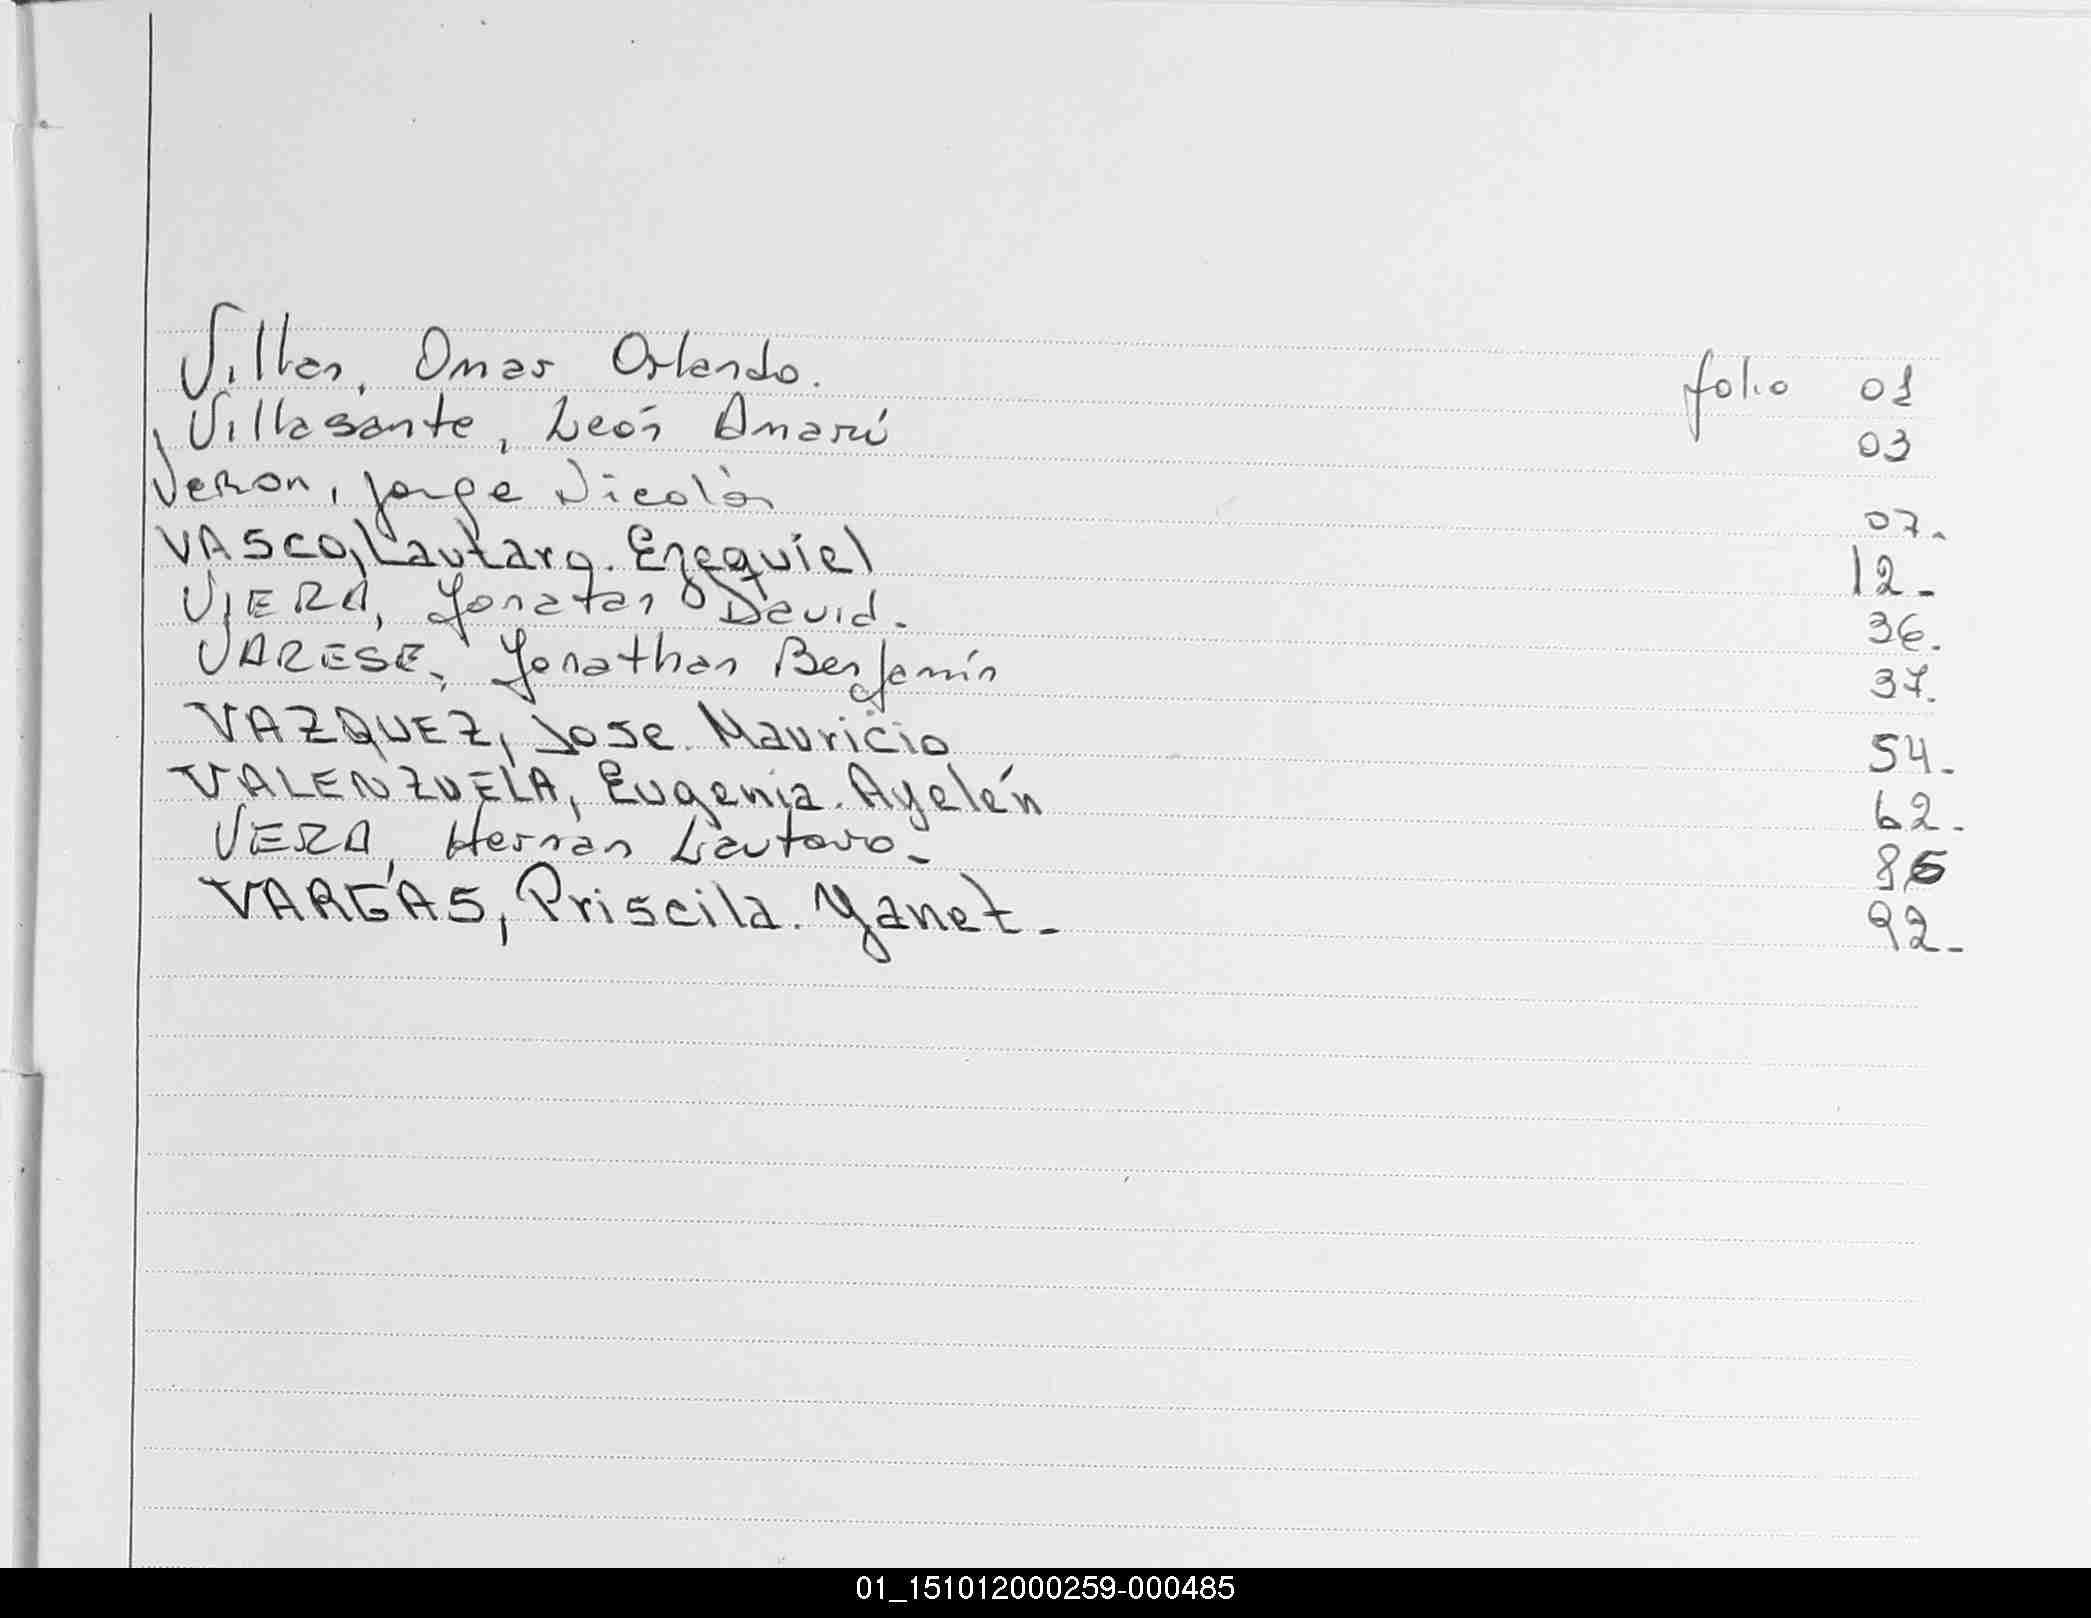 Villan, Omar Orlando. folio 01
Villasante, León Amarú 03
Veron, Jorge Nicolás 07.
VASCO, Lautaro. Ezequiel 12-
VIERA, Jonatan David. 36.
VARESE, Jonathan Benjamín 37.
VAZQUEZ, Jose. Mauricio 54-
VALENZUELA, Eugenia. Ayelén 62-
VERA, Hernan Lautaro- 86
VARGAS, Priscila. Yanet- 92-
01_151012000259-000485